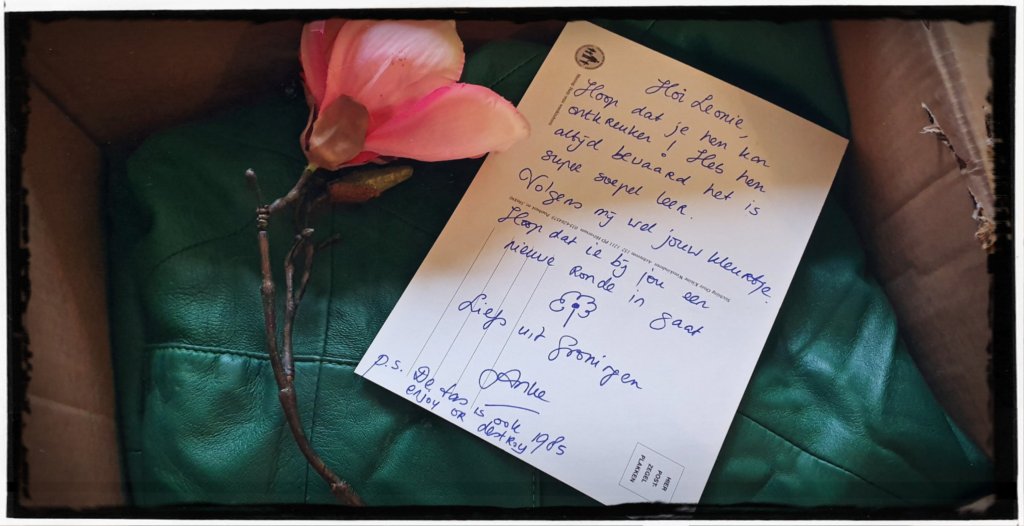 Hoi Leonie,
Hoop dat je hem kan
ontkreuken! Heb hem
altijd bewaard het is
super soepel leer.
Volgens mij wel jouw kleurtje.
Hoop dat ie bij jou een
nieuwe ronde in gaat
Liefs uit Groningen
Anke
p.s. De tas is ook 1985
enjoy or destroy
HIER
POST-
ZEGEL
PLAKKEN